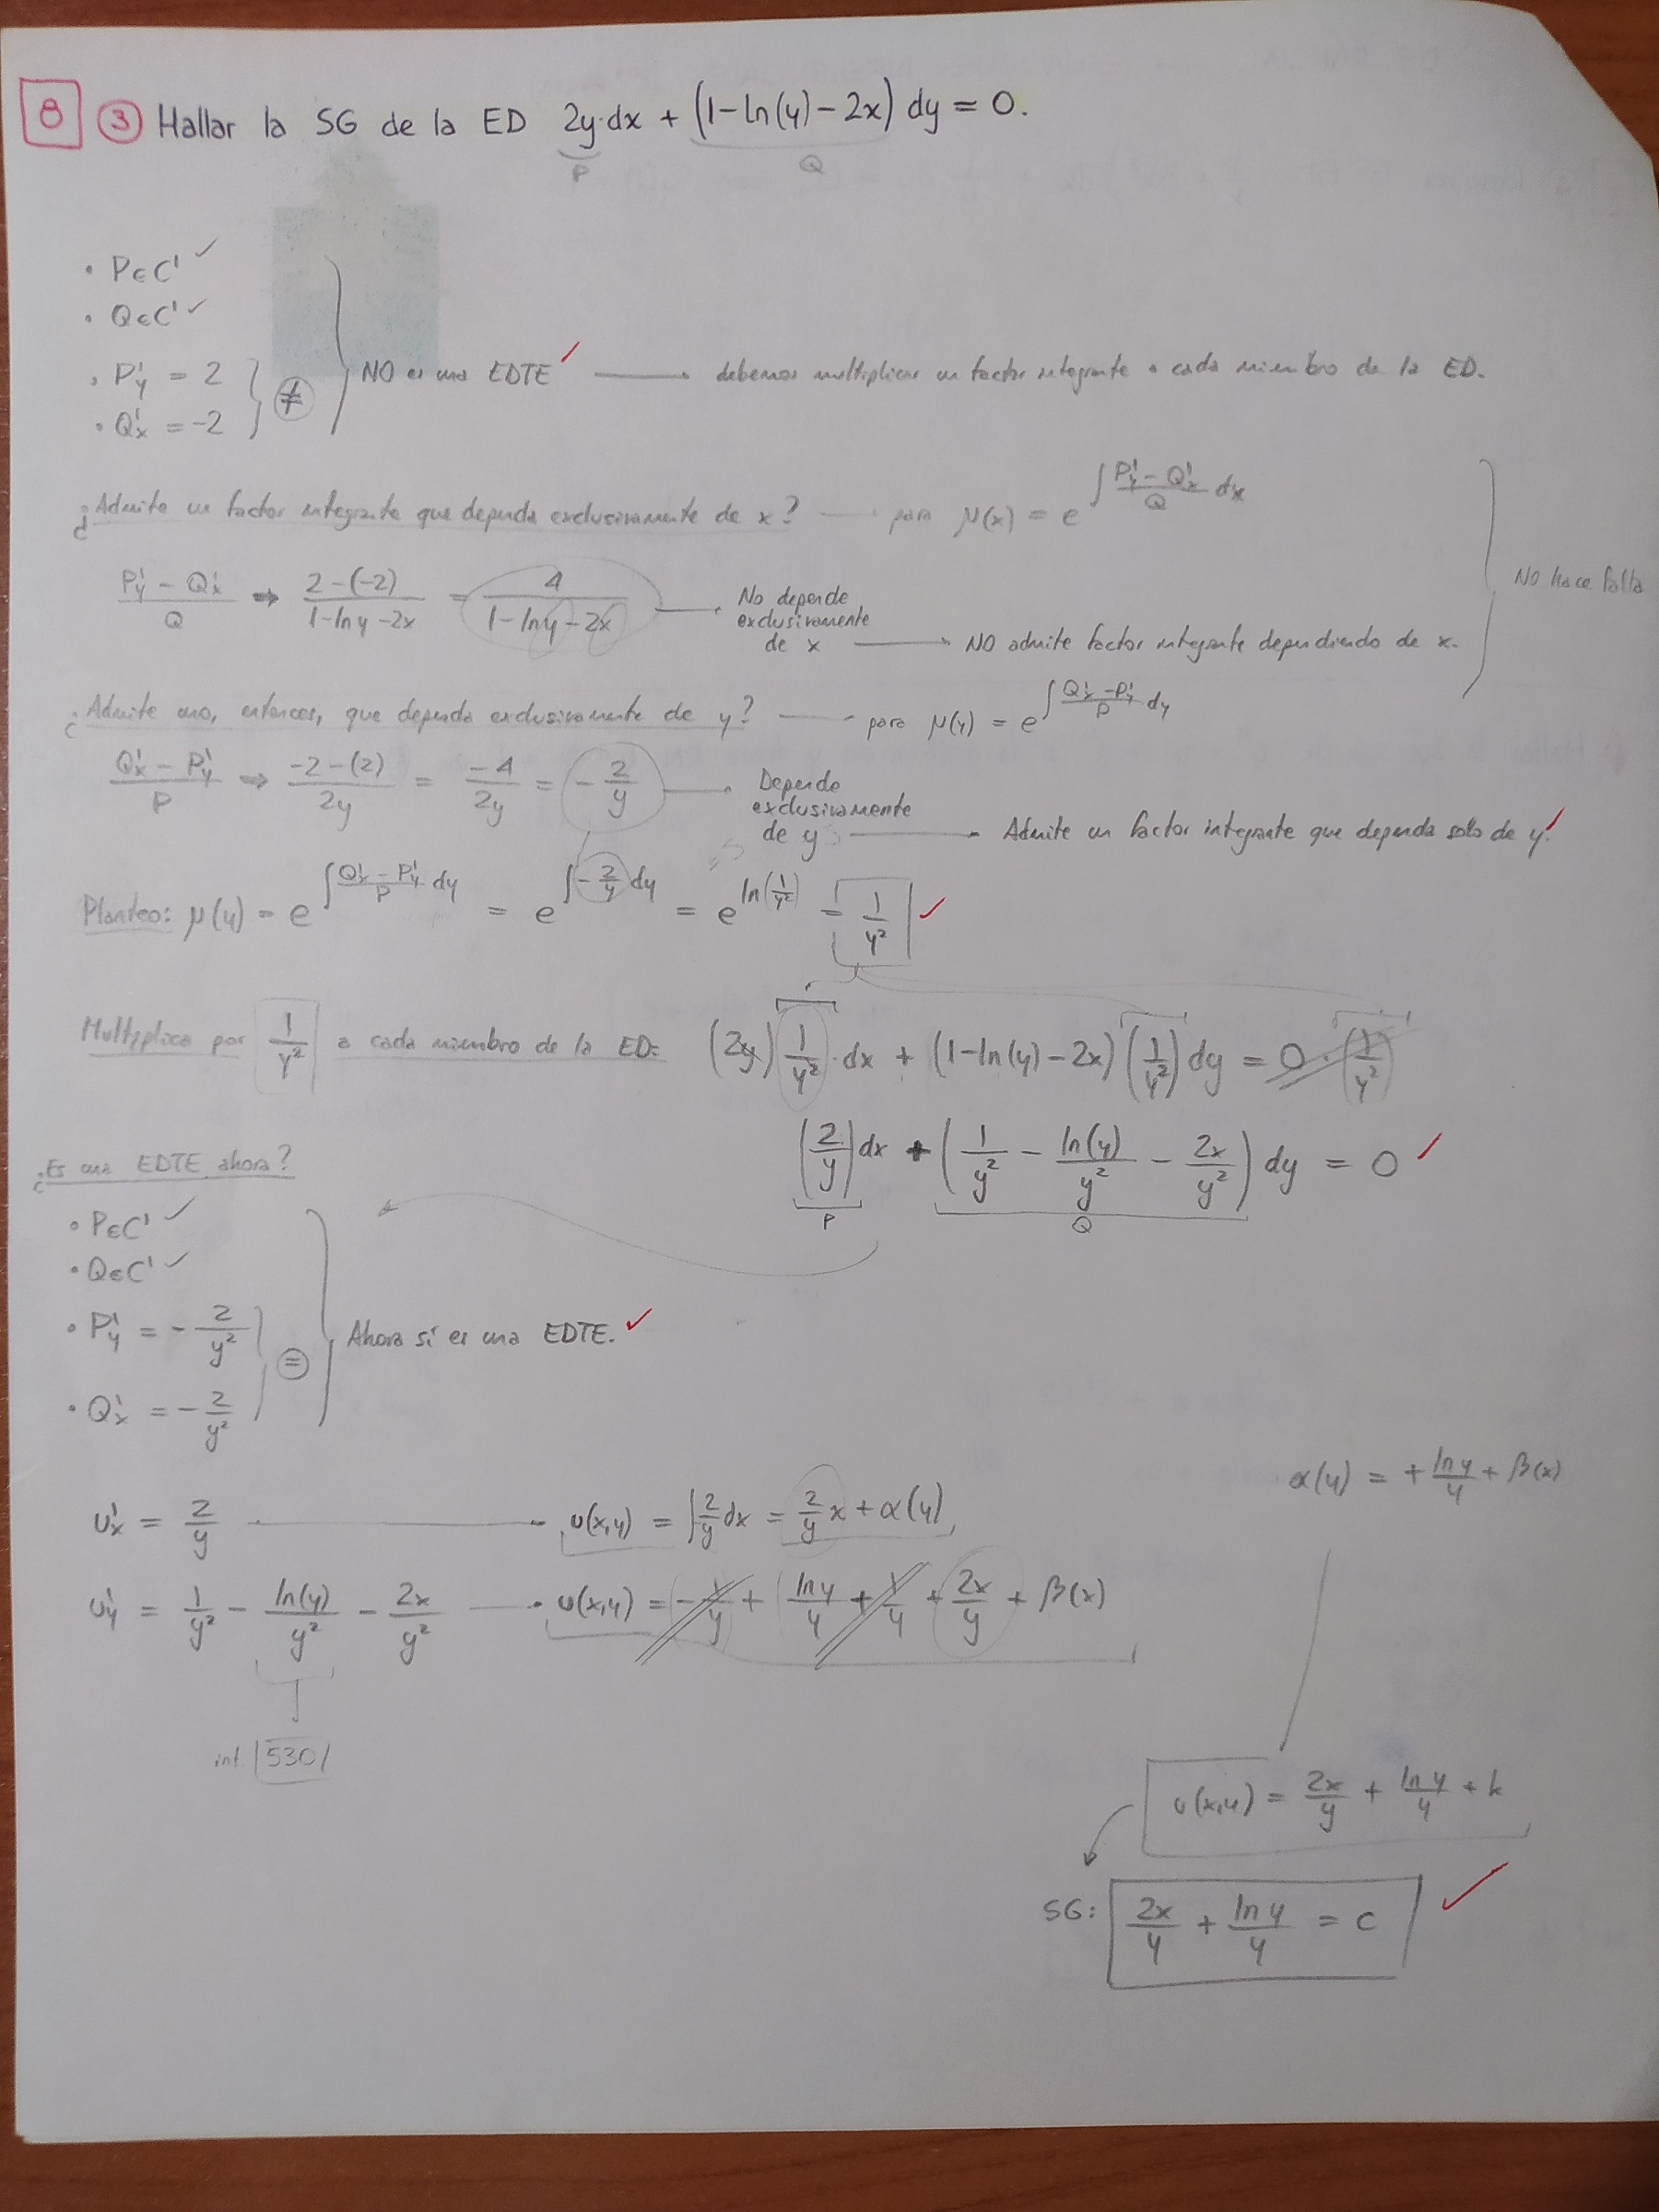 8 ③ Hallar la SG de la ED 2y·dx + (1-ln(y)-2x) dy = 0.
P Q
• P∈C' ✓
• Q∈C' ✓
• P'y = 2
• Q'x = -2
≠
NO es una EDTE ✓ → debemos multiplicar un factor integrante a cada miembro de la ED.
¿Admite un factor integrante que dependa exclusivamente de x? → para μ(x) = e^∫ (P'y - Q'x)/Q dx
(P'y - Q'x)/Q ⇒ (2-(-2))/(1-lny-2x) = 4/(1-lny-2x) → No depende exclusivamente de x → NO admite factor integrante dependiendo de x.
NO hace falta
¿Admite uno, entonces, que dependa exclusivamente de y? → para μ(y) = e^∫ (Q'x - P'y)/P dy
(Q'x - P'y)/P ⇒ (-2-(2))/2y = -4/2y = -2/y → Depende exclusivamente de y → Admite un factor integrante que dependa solo de y. ✓
Planteo: μ(y) = e^∫ (Q'x - P'y)/P dy = e^∫ -2/y dy = e^ln(1/y²) = 1/y² ✓
Multiplico por 1/y² a cada miembro de la ED: (2y) 1/y² · dx + (1-ln(y)-2x) (1/y²) dy = 0 · (1/y²)
(2/y) dx + (1/y² - ln(y)/y² - 2x/y²) dy = 0 ✓
P Q
¿Es una EDTE ahora?
• P∈C' ✓
• Q∈C' ✓
• P'y = -2/y²
• Q'x = -2/y²
=
Ahora sí es una EDTE. ✓
α(y) = + lny/y + β(x)
U'x = 2/y → u(x,y) = ∫ 2/y dx = 2/y x + α(y)
U'y = 1/y² - ln(y)/y² - 2x/y² → u(x,y) = -1/y + lny/y + 1/y + 2x/y + β(x)
int 530
u(x,y) = 2x/y + lny/y + k
SG: 2x/y + lny/y = C ✓